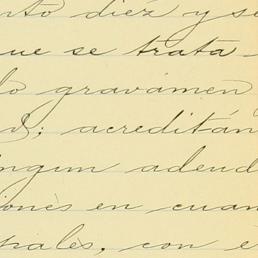 nto diéz y se
que se trata
lo gravámen
d; acreditán
ingun adeud
iones en cuan
rales, con é